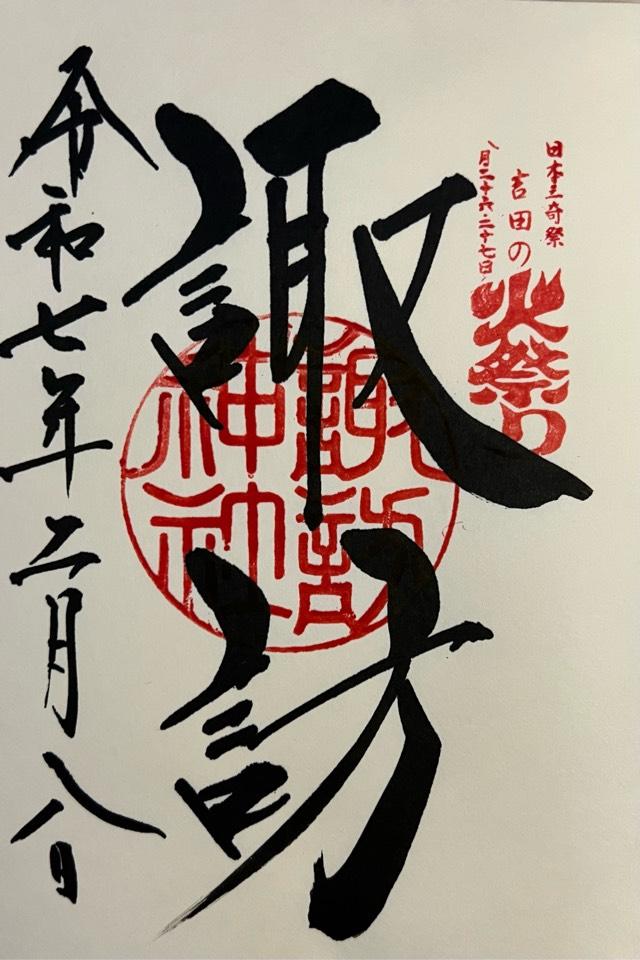 日本三奇祭
吉田の
火祭り
八月二十六・二十七日
諏訪
諏訪
神社
令和七年二月八日